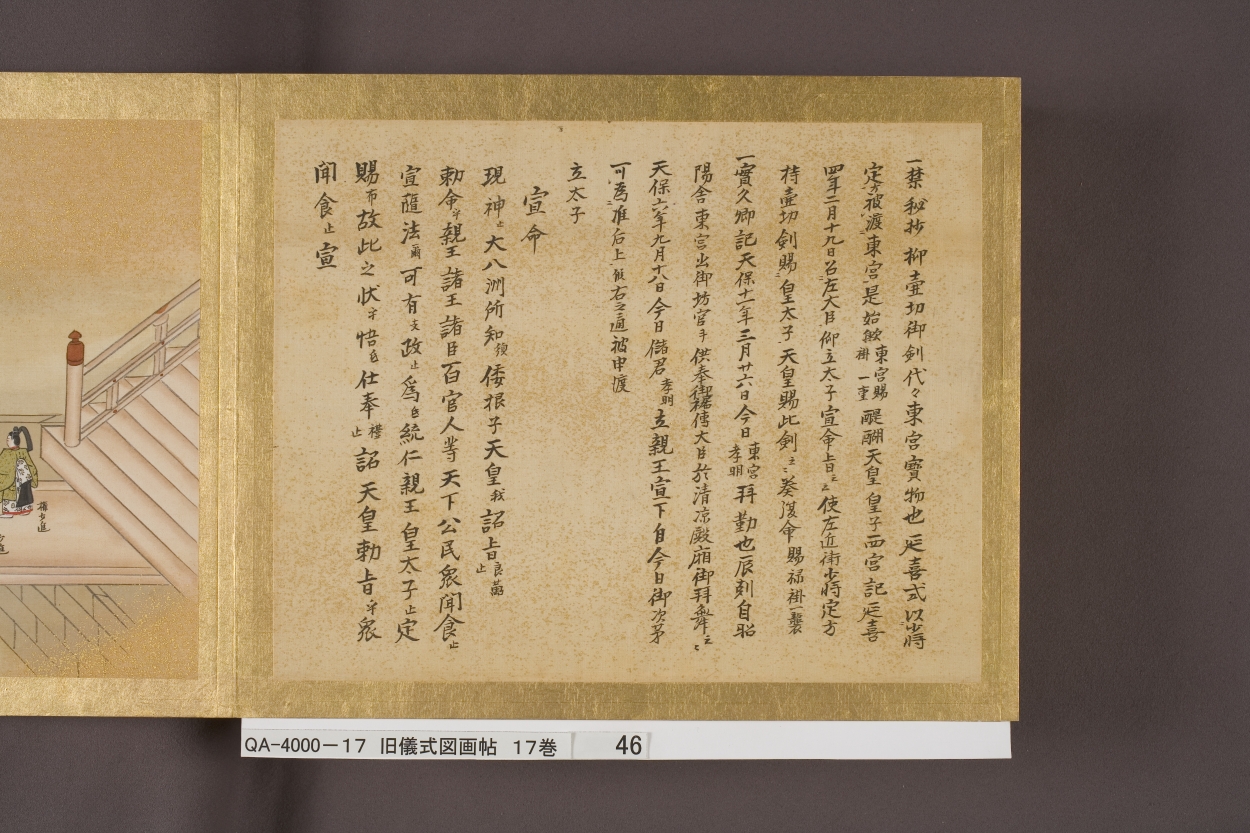 一禁秘抄柳壺切御剣代々東宮寳物也延喜式以少将
定方被渡東宮是始歟東宮賜褂一重醍醐天皇皇子西宮記延喜
四年二月十九日召左大臣仰立太子宣命上旨云々使左近衛少将定方
持壺切剣賜皇太子天皇賜此剣云々奏復命賜禄褂一襲
一實久卿記天保十一年三月廿六日今日東宮孝明拜勤也辰剋自昭
陽舎東宮出御坊官等供奉御裾傅大臣於清凉殿廂御拜舞云々
天保六年九月十八日今日儲君孝明立親王宣下自今日御次第
可為准后上仮右之通被申渡
立太子
宣命
現神止大八洲所知須倭根子天皇我詔旨良萬止
勅命乎親王諸王諸臣百官人等天下公民衆聞食止
宣随法爾可有支政止為弖統仁親王皇太子止定
賜布故此之状乎悟弖仕奉禮止詔天皇勅旨乎衆
聞食止宣
権大進
QA-4000-17 旧儀式図画帖 17巻 46